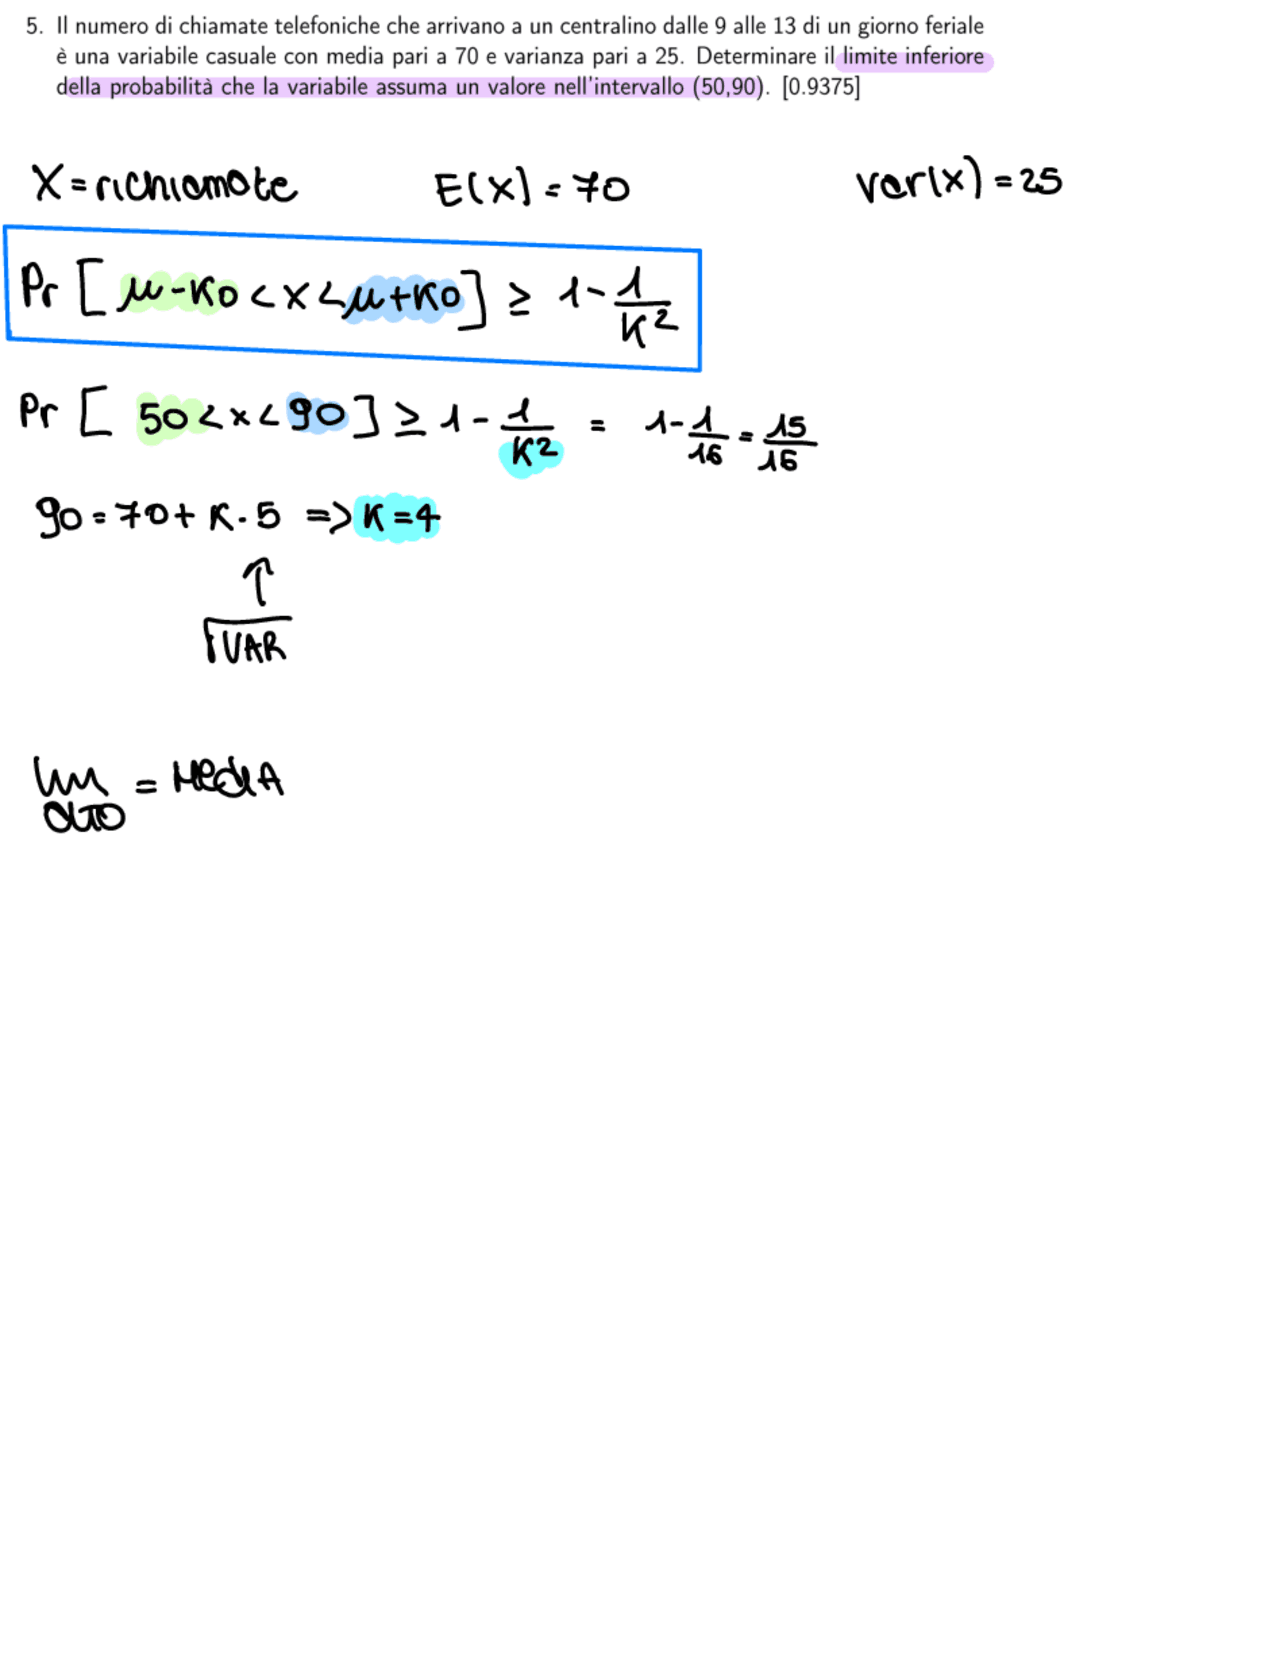 5. Il numero di chiamate telefoniche che arrivano a un centralino dalle 9 alle 13 di un giorno feriale
è una variabile casuale con media pari a 70 e varianza pari a 25. Determinare il limite inferiore
della probabilità che la variabile assuma un valore nell'intervallo (50,90). [0.9375]
X = richiamate E(X) = 70 var(x) = 25
Pr [ μ-Kσ < x < μ+Kσ ] ≥ 1 - 1/K²
Pr [ 50 < x < 90 ] ≥ 1 - 1/K² = 1 - 1/16 = 15/16
90 = 70 + K · 5 => K = 4
↑
√VAR
= MEDIA